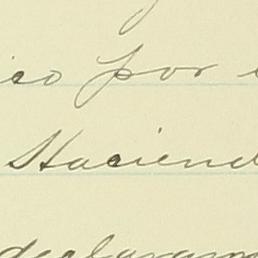 ico por
Haciend
declaram